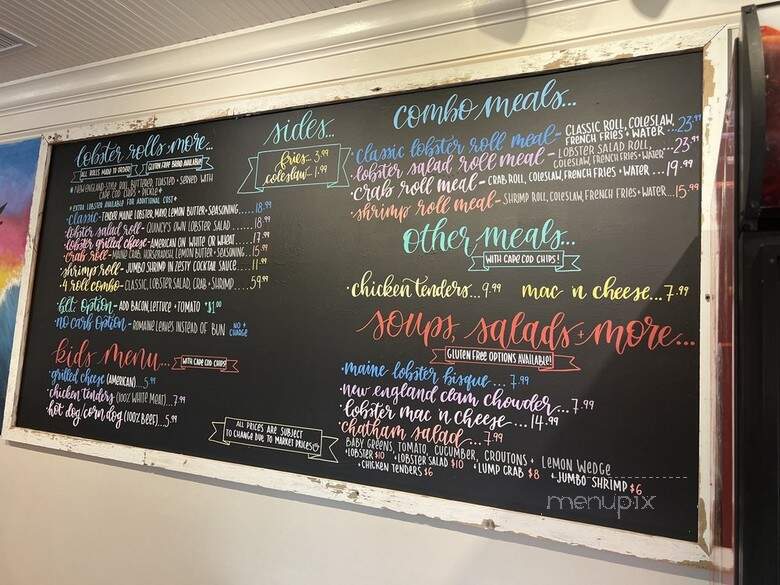 lobster rolls + more...
ALL ROLLS MADE TO ORDER!
GLUTEN FREE BREAD AVAILABLE
* NEW ENGLAND-STYLE ROLL, BUTTERED, TOASTED + SERVED WITH
CAPE COD CHIPS + PICKLE *
* EXTRA LOBSTER AVAILABLE FOR ADDITIONAL COST *
• classic - TENDER MAINE LOBSTER, MAYO, LEMON BUTTER + SEASONING.....18.99
• lobster salad roll - QUINCY'S OWN LOBSTER SALAD......18.99
• lobster grilled cheese - AMERICAN ON WHITE OR WHEAT....17.99
• crab roll - MAINE CRAB, HORSERADISH, LEMON BUTTER + SEASONING...15.99
• shrimp roll - JUMBO SHRIMP IN ZESTY COCKTAIL SAUCE....11.99
• 4 roll combo - CLASSIC, LOBSTER SALAD, CRAB + SHRIMP.....59.99
• blt option - ADD BACON, LETTUCE + TOMATO +$1.00
• no carb option - ROMAINE LEAVES INSTEAD OF BUN NO + CHARGE
kids menu...
WITH CAPE COD CHIPS!
• grilled cheese (AMERICAN)...5.99
• chicken tenders (100% WHITE MEAT)...7.99
• hot dog/corn dog (100% BEEF)...5.99
sides...
fries... 3.99
coleslaw... 1.99
ALL PRICES ARE SUBJECT
TO CHANGE DUE TO MARKET PRICES
combo meals...
• classic lobster roll meal - CLASSIC ROLL, COLESLAW, FRENCH FRIES + WATER...23.99
• lobster salad roll meal - LOBSTER SALAD ROLL, COLESLAW, FRENCH FRIES + WATER...23.99
• crab roll meal - CRAB ROLL, COLESLAW, FRENCH FRIES + WATER....19.99
• shrimp roll meal - SHRIMP ROLL, COLESLAW, FRENCH FRIES + WATER...15.99
other meals...
WITH CAPE COD CHIPS!
• chicken tenders...9.99 mac n cheese...7.99
soups, salads + more...
GLUTEN FREE OPTIONS AVAILABLE!
• maine lobster bisque ...7.99
• new england clam chowder...7.99
• lobster mac n cheese...14.99
• chatham salad...7.99
BABY GREENS, TOMATO, CUCUMBER, CROUTONS + LEMON WEDGE
+LOBSTER $10 +LOBSTER SALAD $10 +LUMP CRAB $8 +JUMBO SHRIMP $6
+CHICKEN TENDERS $6
menupix